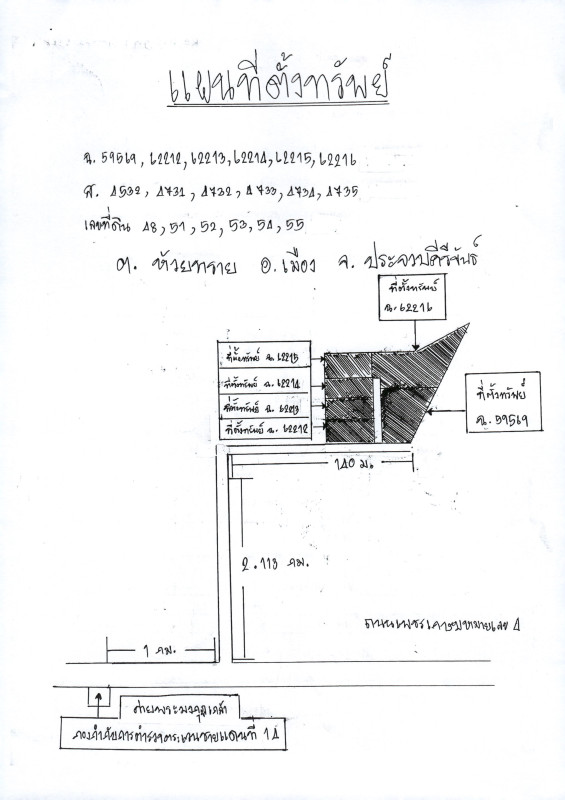 แผนที่ตั้งทรัพย์
ฉ. 59569, 62212, 62213, 62214, 62215, 62216
ศ. 4532, 4731, 4732, 4733, 4734, 4735
เลขที่ดิน 48, 51, 52, 53, 54, 55
ต. ห้วยทราย อ. เมือง จ. ประจวบคีรีขันธ์
ที่ตั้งทรัพย์
ฉ. 62216
ที่ตั้งทรัพย์ ฉ. 62215
ที่ตั้งทรัพย์ ฉ. 62214
ที่ตั้งทรัพย์ ฉ. 62213
ที่ตั้งทรัพย์ ฉ. 62212
ที่ตั้งทรัพย์
ฉ. 59569
140 ม.
2.113 กม.
ถนนเพชรเกษมหมายเลข 4
1 กม.
ค่ายพระมงกุฎเกล้า
กองกำกับการตำรวจตระเวนชายแดนที่ 14